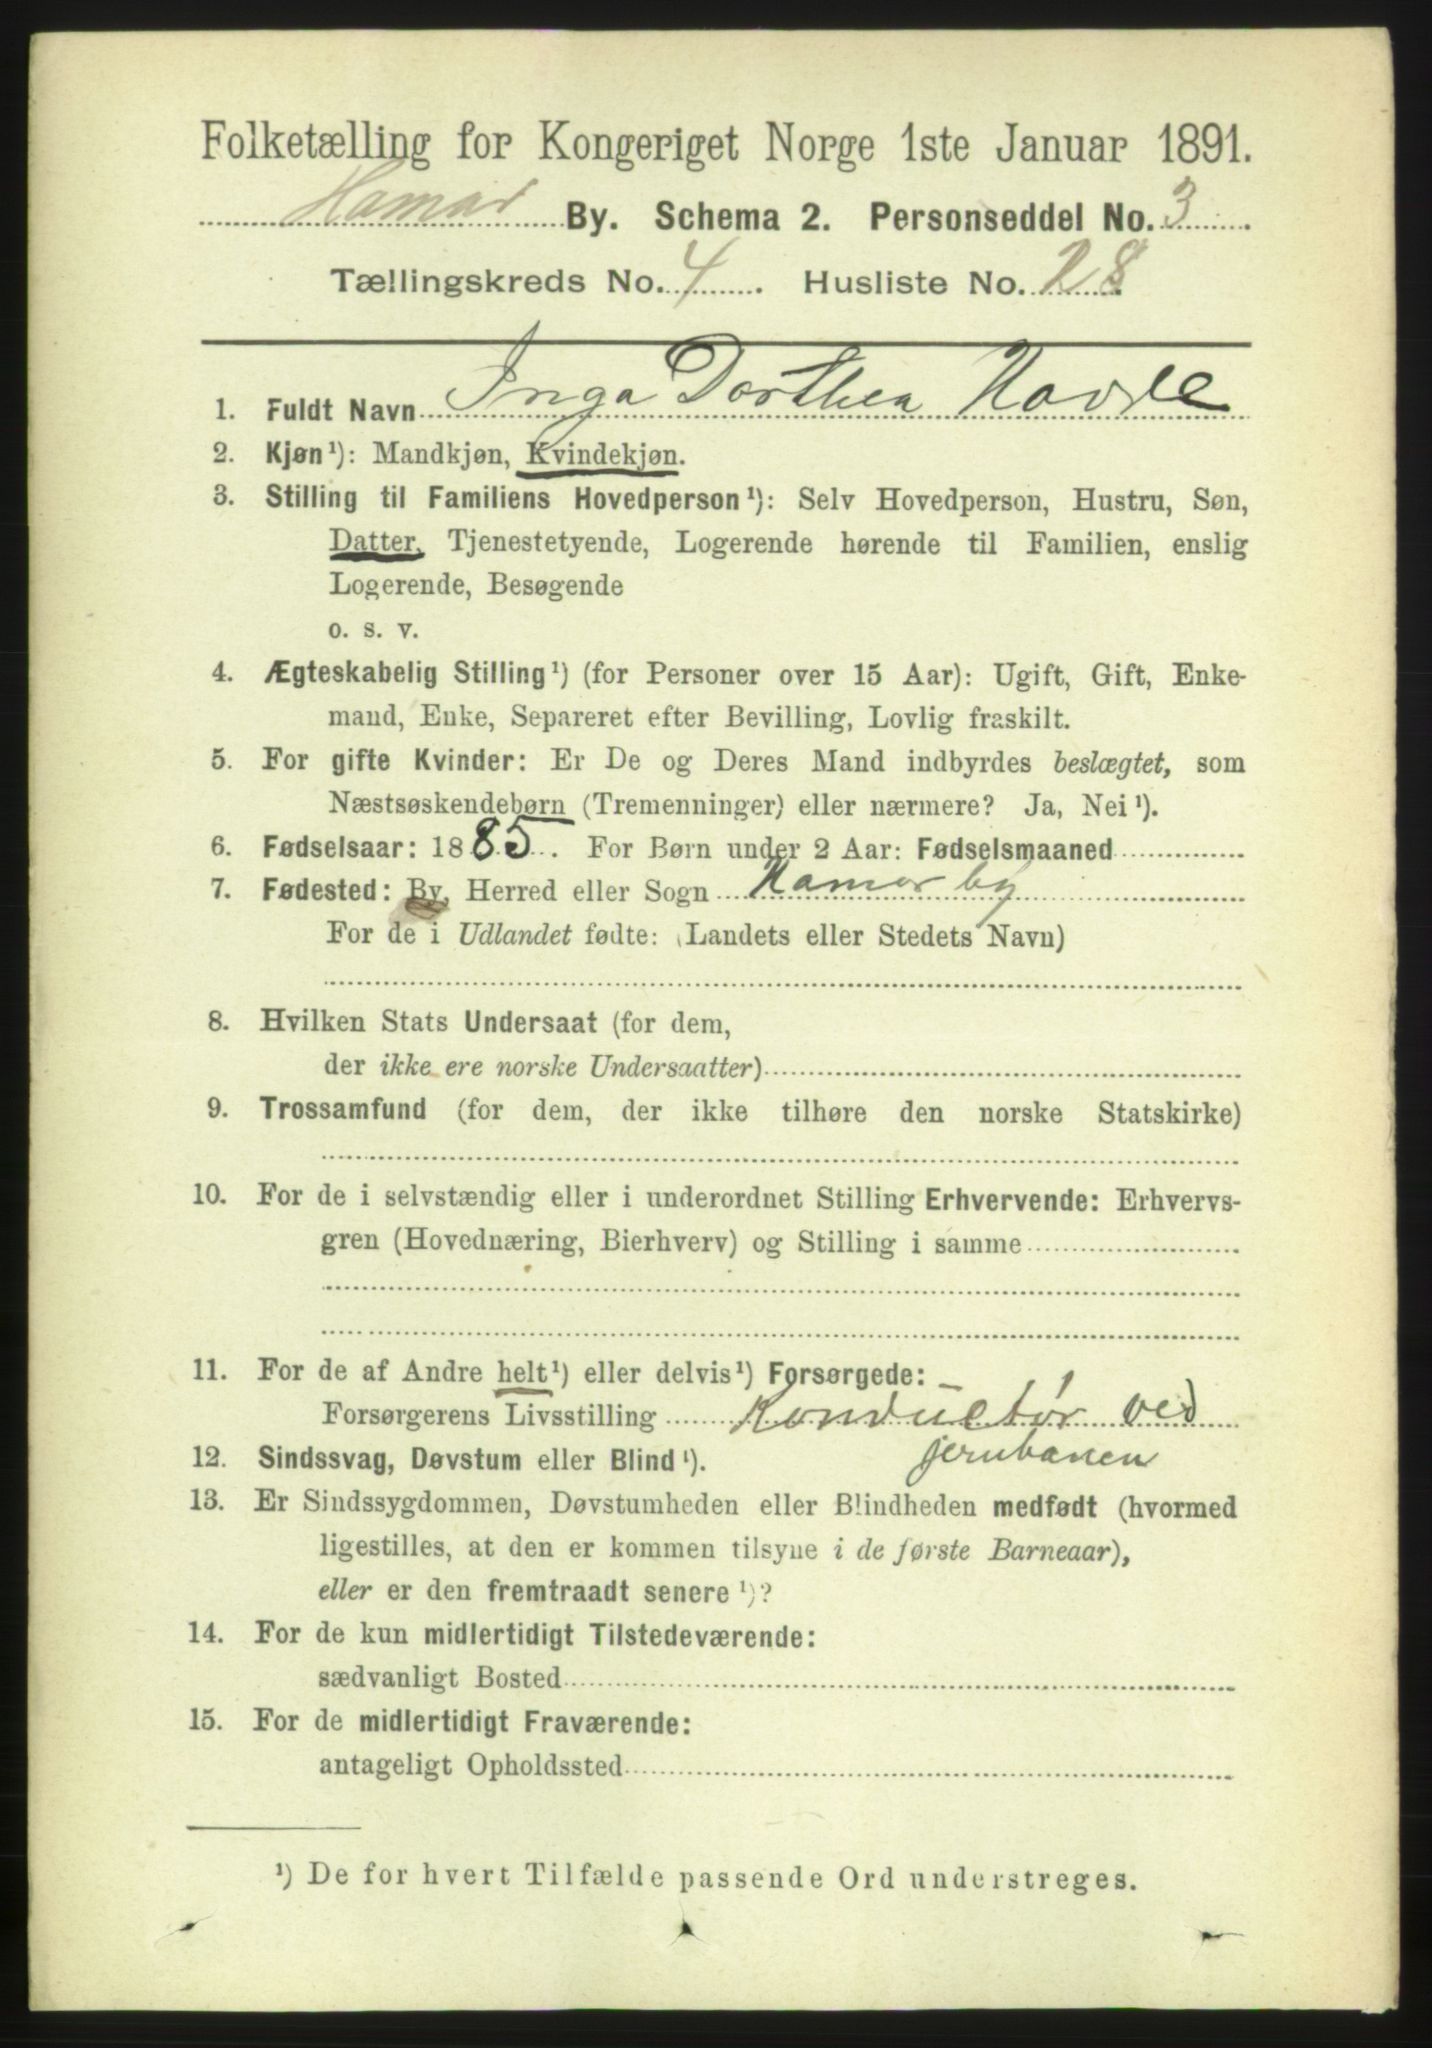 Folketælling for Kongeriget Norge 1ste Januar 1891.
Hamar By. Schema 2. Personseddel No. 3
Tællingskreds No. 4. Husliste No. 28.
1. Fuldt Navn Inga Dorthea
2. Kjøn¹): Mandkjøn, Kvindekjøn.
3. Stilling til Familiens Hovedperson¹): Selv Hovedperson, Hustru, Søn,
Datter, Tjenestetyende, Logerende hørende til Familien, enslig
Logerende, Besøgende
o. s. v.
4. Ægteskabelig Stilling¹) (for Personer over 15 Aar): Ugift, Gift, Enke-
mand, Enke, Separeret efter Bevilling, Lovlig fraskilt.
5. For gifte Kvinder: Er De og Deres Mand indbyrdes beslægtet, som
Næstsøskendebørn (Tremenninger) eller nærmere? Ja, Nei¹).
6. Fødselsaar: 1885. For Børn under 2 Aar: Fødselsmaaned
7. Fødested: By, Herred eller Sogn Hamar by
For de i Udlandet fødte: (Landets eller Stedets Navn)
8. Hvilken Stats Undersaat (for dem,
der ikke ere norske Undersaatter)
9. Trossamfund (for dem, der ikke tilhøre den norske Statskirke)
10. For de i selvstændig eller i underordnet Stilling Erhvervende: Erhvervs-
gren (Hovednæring, Bierhverv) og Stilling i samme
11. For de af Andre helt¹) eller delvis¹) Forsørgede:
Forsørgerens Livsstilling Konductør ved
jernbanen
12. Sindssvag, Døvstum eller Blind¹).
13. Er Sindssygdommen, Døvstumheden eller Blindheden medfødt (hvormed
ligestilles, at den er kommen tilsyne i de første Barneaar),
eller er den fremtraadt senere¹)?
14. For de kun midlertidigt Tilstedeværende:
sædvanligt Bosted
15. For de midlertidigt Fraværende:
antageligt Opholdssted
¹) De for hvert Tilfælde passende Ord understreges.